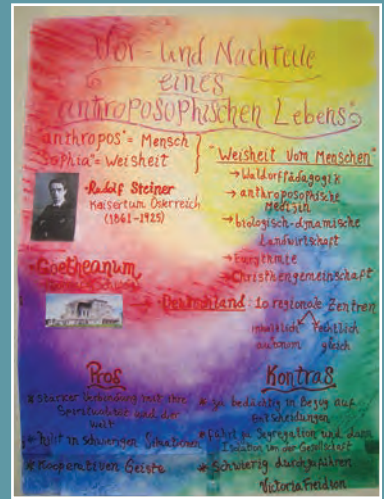 Vor- und Nachteile
eines
"anthroposophischen Lebens"
anthropos" = Mensch
Sophia" = Weisheit
"Weisheit vom Menschen"
→ Waldorfpädagogik
→ anthroposophische
Medizin
→ biologisch-dynamische
Landwirtschaft
→ Eurythmie
→ Christengemeinschaft
-Rudolf Steiner
Kaisertum Österreich
(1861-1925)
-Goetheanum
→ Deutschland: 10 regionale Zentren
inhaltlich autonom
rechtlich gleich
Pros
* starker Verbindung mit ihre
Spiritualität und der
Welt
* hilft in schwierigen Situationen
* Kooperativen Geiste
Kontras
* zu bedächtig in Bezug auf
Entscheidungen
* führt zu Segregation und dann
Isolation von der Gesellschaft
* Schwierig durchzuführen
Victoria Freidson